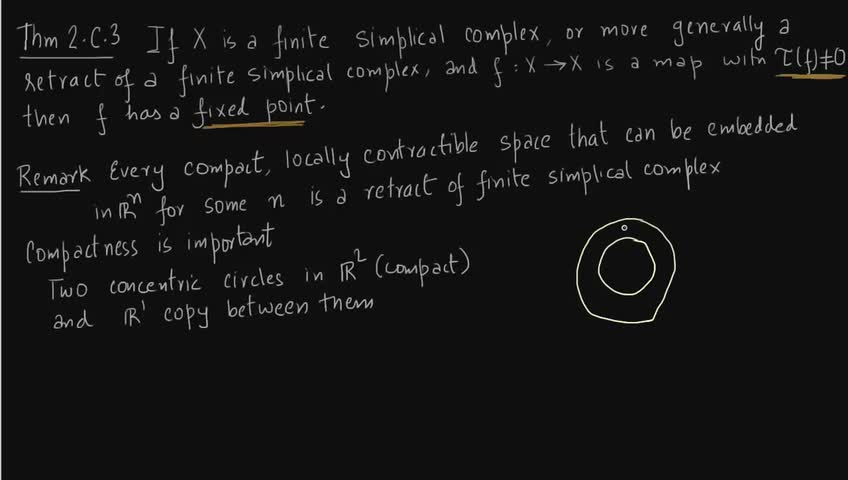 Thm 2.C.3 If X is a finite simplical complex, or more generally a
retract of a finite simplical complex, and f : X → X is a map with τ(f)≠0
then f has a fixed point.
Remark Every compact, locally contractible space that can be embedded
in ℝⁿ for some n is a retract of finite simplical complex
Compactness is important
Two concentric circles in ℝ² (compact)
and ℝ¹ copy between them